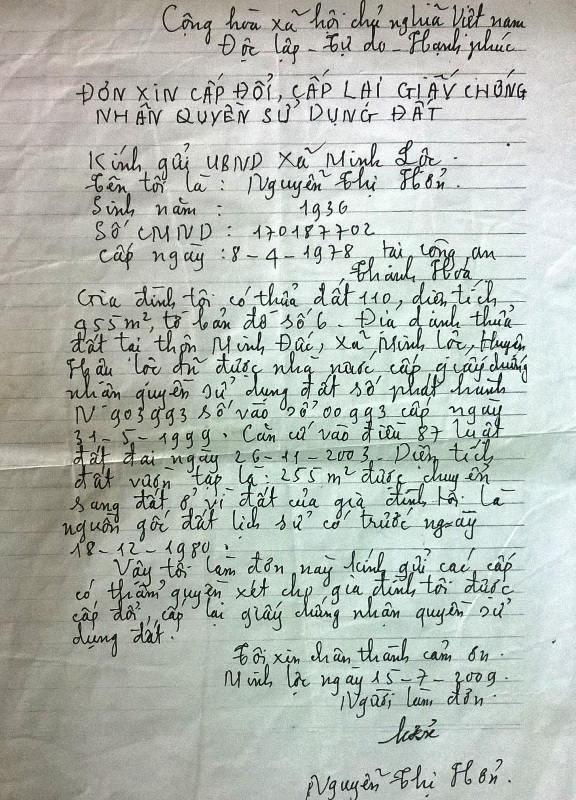 Cộng hoà xã hội chủ nghĩa Việt nam
Độc lập - Tự do - Hạnh phúc
ĐƠN XIN CẤP ĐỔI, CẤP LẠI GIẤY CHỨNG
NHẬN QUYỀN SỬ DỤNG ĐẤT
Kính gửi UBND Xã Minh Lộc.
Tên tôi là : Nguyễn Thị Hơn.
Sinh năm : 1936
Số CMND : 170187702
Cấp ngày : 8-4-1978 tại công an
Thanh Hoá
Gia đình tôi có thửa đất 110, diện tích
955m², tờ bản đồ số 6. Địa danh thửa
đất tại thôn Minh Đức, xã Minh lộc, Huyện
Hậu lộc đã được nhà nước cấp giấy chứng
nhận quyền sử dụng đất số phát hành
N 903993 số vào sổ 00993 cấp ngày
31-5-1999. Căn cứ vào điều 87 luật
đất đai ngày 26-11-2003. Diện tích
đất vườn tạp là: 255 m² được chuyển
sang đất ở vì đất của gia đình tôi là
nguồn gốc đất lịch sử có trước ngày
18-12-1980.
Vậy tôi làm đơn này kính gửi các cấp
có thẩm quyền xét cho gia đình tôi được
cấp đổi, cấp lại giấy chứng nhận quyền sử
dụng đất.
Tôi xin chân thành cảm ơn.
Minh lộc ngày 15-7-2009.
Người làm đơn.
Nguyễn Thị Hơn.